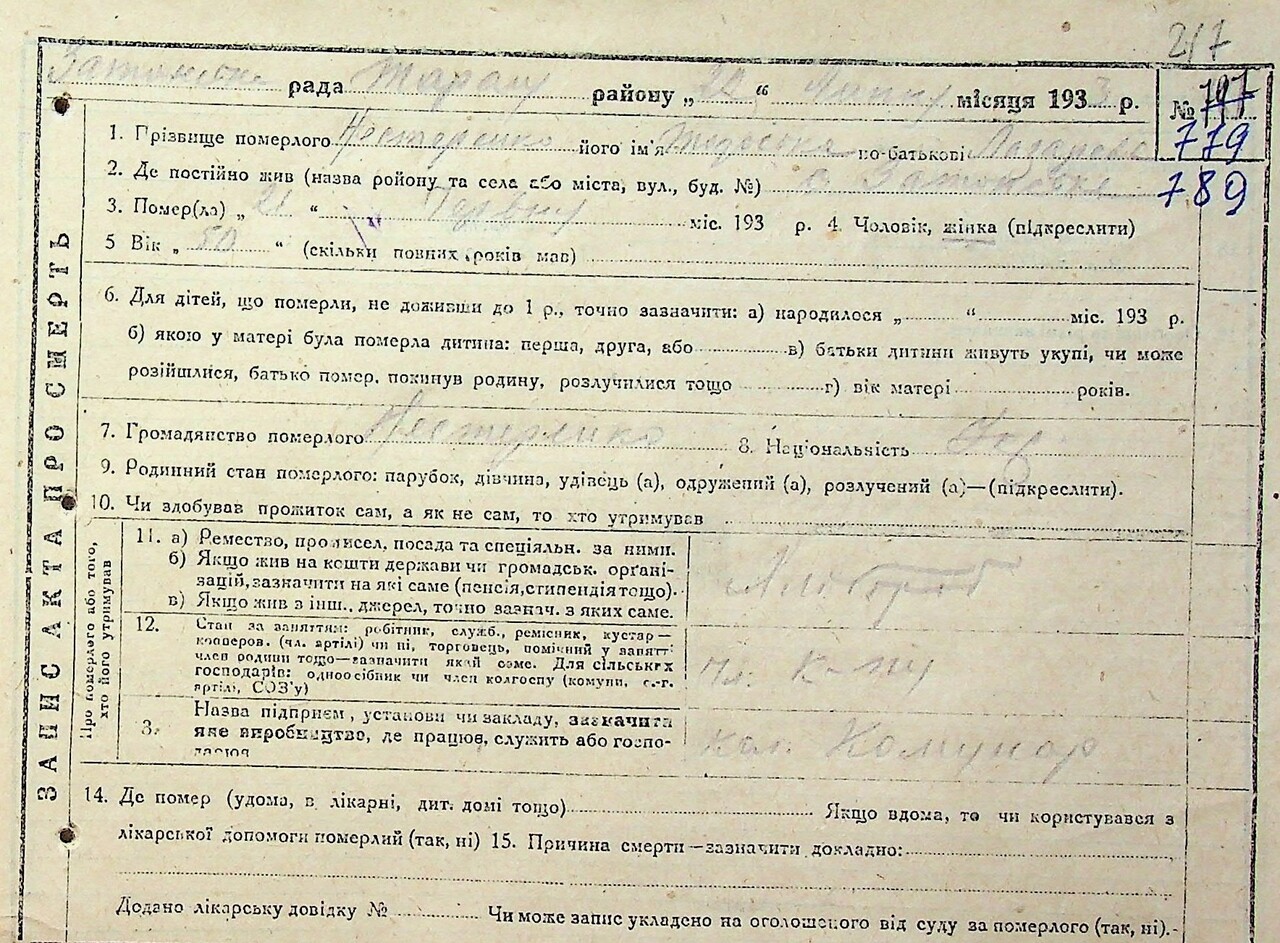 217
рада району „ “ місяця 1933 р.
№ 717
779
789
1. Прізвище померлого Нестеренко його ім'я Тодоська по-батькові
2. Де постійно жив (назва району та села або міста, вул., буд. №) с
3. Помер(ла) „ 21 “ Червня міс. 193 р. 4. Чоловік, жінка (підкреслити)
5 Вік „ 50 “ (скільки повних років мав)
6. Для дітей, що померли, не доживши до 1 р., точно зазначити: а) народилося „ “ міс. 193 р.
б) якою у матері була померла дитина: перша, друга, або в) батьки дитини живуть укупі, чи може
розійшлися, батько помер, покинув родину, розлучилися тощо г) вік матері років.
7. Громадянство померлого Нестеренко 8. Національність Укр.
9. Родинний стан померлого: парубок, дівчина, удівець (а), одружений (а), розлучений (а)—(підкреслити).
10. Чи здобував прожиток сам, а як не сам, то хто утримував
ЗАПИС АКТА ПРО СМЕРТЬ
Про померлого або того,
хто його утримував
11. а) Ремество, промисел, посада та спеціяльн. за ними.
б) Якщо жив на кошти держави чи громадськ. орґані-
зацій, зазначити на які саме (пенсія, стипендія тощо).
в) Якщо жив з інш., джерел, точно зазнач. з яких саме.
12. Стан за заняттям: робітник, служб., ремісник, кустар—
кооперов. (чл. артілі) чи ні, торговець, помічний у занятт:
член родини тощо—зазначити який саме. Для сільських
господарів: одноосібник чи член колгоспу (комуни, с.-г.
артілі, СОЗ'у)
чл. к-пу
3. Назва підприєм, установи чи закладу, зазначити
яке виробництво, де працює, служить або госпо-
дарює
кол. Комунар
14. Де помер (удома, в лікарні, дит. домі тощо) Якщо вдома, то чи користувався з
лікарської допомоги померлий (так, ні) 15. Причина смерти—зазначити докладно:
Додано лікарську довідку № Чи може запис укладено на оголошеного від суду за померлого (так, ні).